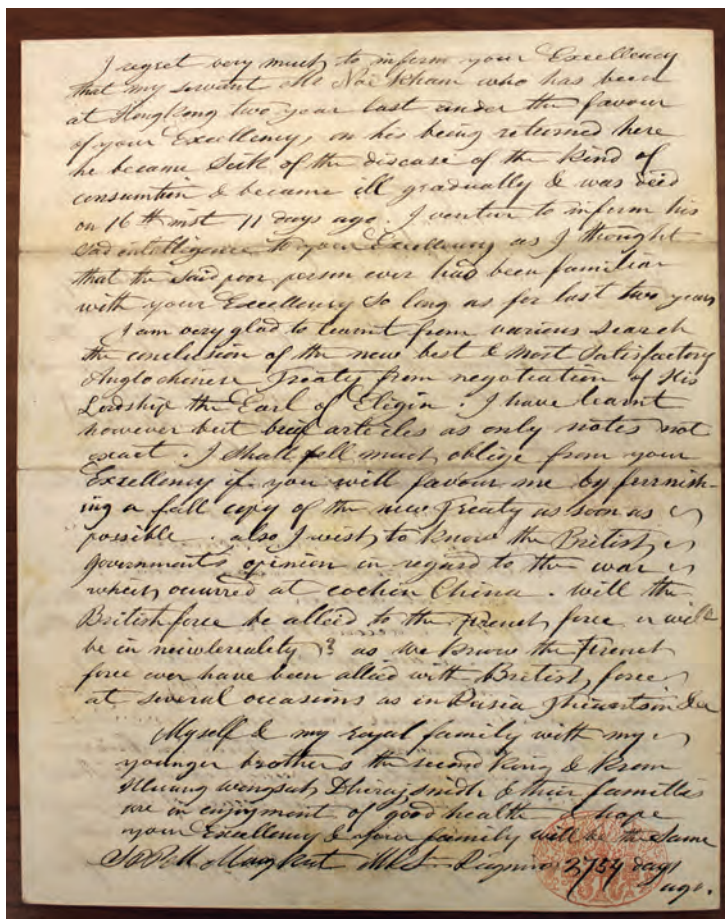 I regret very much to inform your Excellency
that my servant Mr Nai Kham who has been
at Hongkong two year last under the favour
of your Excellency, on his being returned here
he became Sick of the disease of the kind of
consumtion & became ill gradually & was died
on 16th inst 11 days ago. I venture to inform his
Sad intelligence to your Excellency as I thought
that the said poor person ever had been familiar
with your Excellency so long as for last two years
I am very glad to learnt from various search
the conclusion of the new best & most Satisfactory
Anglochinese Treaty from negotiation of His
Lordship the Earl of Eligin. I have learnt
however but brief articles as only notes not
exact. I shall fell much oblige from your
Excellency if you will favour me by furnish-
ing a full copy of the new Treaty as soon as
possible. also I wish to know the British
government's opinion in regard to the war
which ocurred at cochin China. will the
British force be allied to the French force or will
be in neiwtereality? as we know the French
force ever have been allied with British force
at several occasions as in Rusia &c
Myself & my royal family with my
younger brothers the second King & Krom
Hluang wongsah Dhiraj snidh & their families
are in enjoyment of good health & hope
your Excellency & your family will be the Same
S. P. P. M. Mongkut 2754 days
ago.